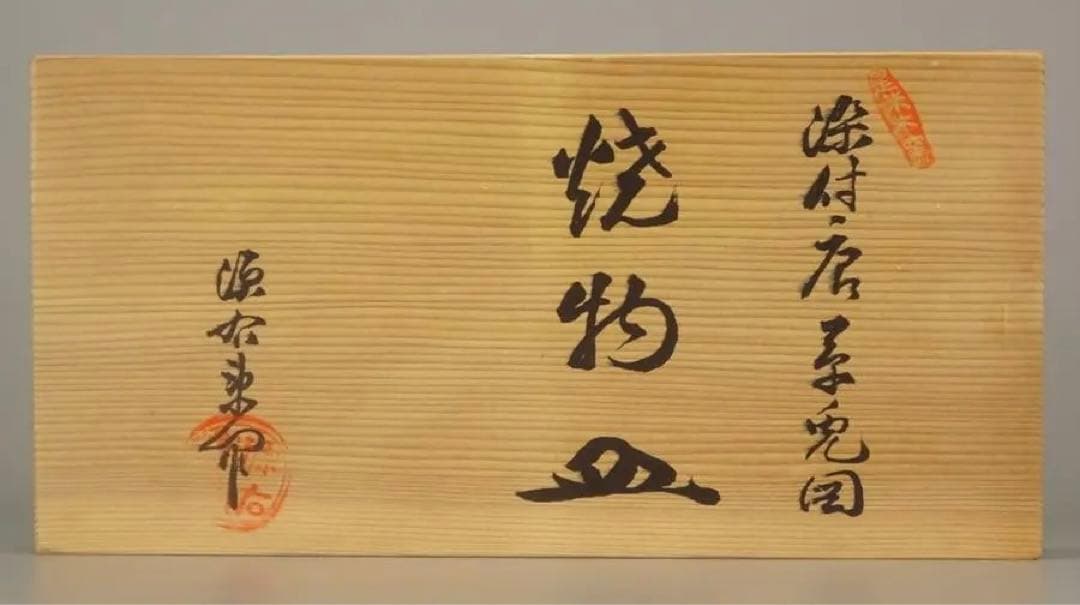 染付唐草兎図
焼物皿
源右エ門